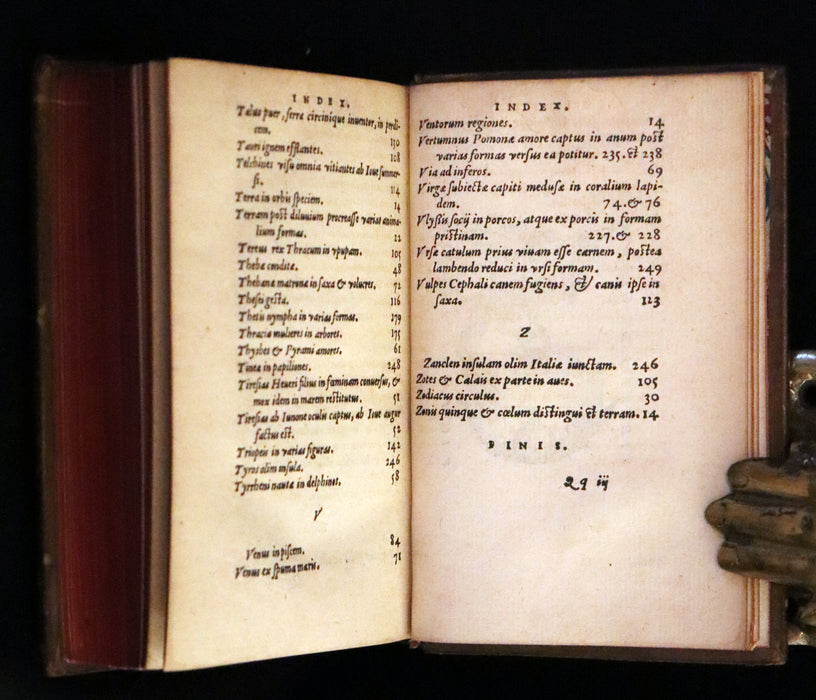 INDEX.
Talus puer, serra circiniq́ue inuentor, in perdi-
cem. 130
Tauri ignem efflantes. 108
Telchines visu omnia vitiantes ab Ioue summer-
si. 114
Terra in orbis speciem. 14
Terram post diluuium procreasse varias anima-
lium formas. 22
Tereus rex Thracum in vpupam. 105
Thebæ conditæ. 48
Thebanæ matronæ in saxa & volucres. 72
Thesei gesta. 116
Thetis nympha in varias formas. 179
Thraciæ mulieres in arbores. 175
Thysbes & Pyrami amores. 61
Tineæ in papiliones. 248
Tiresias Heueri filius in fœminam conuersus, &
mox idem in marem restitutus. 51
Tiresias ab Iunone oculis captus, ab Ioue augur
factus est. 52
Triopeis in varias figuras. 142
Tyros olim insula. 246
Tyrrheni nautæ in delphines. 58
V
Venus in piscem. 84
Venus ex spuma maris. 71
INDEX.
Ventorum regiones. 14
Vertumnus Pomonæ amore captus in anum post
varias formas versus ea potitur. 235. & 238
Via ad inferos. 69
Virgæ subiectæ capiti medusæ in coralium lapi-
dem. 74. & 76
Vlyssis socij in porcos, atque ex porcis in formam
pristinam. 227. & 228
Vrsæ catulum prius viuam esse carnem, postea
lambendo reduci in vrsi formam. 249
Vulpes Cephali canem fugiens, & canis ipse in
saxa. 123
Z
Zanclen insulam olim Italiæ iunctam. 246
Zetes & Calais ex parte in aues. 105
Zodiacus circulus. 30
Zonis quinque & cœlum distingui et terram. 14
FINIS.
Qq iij